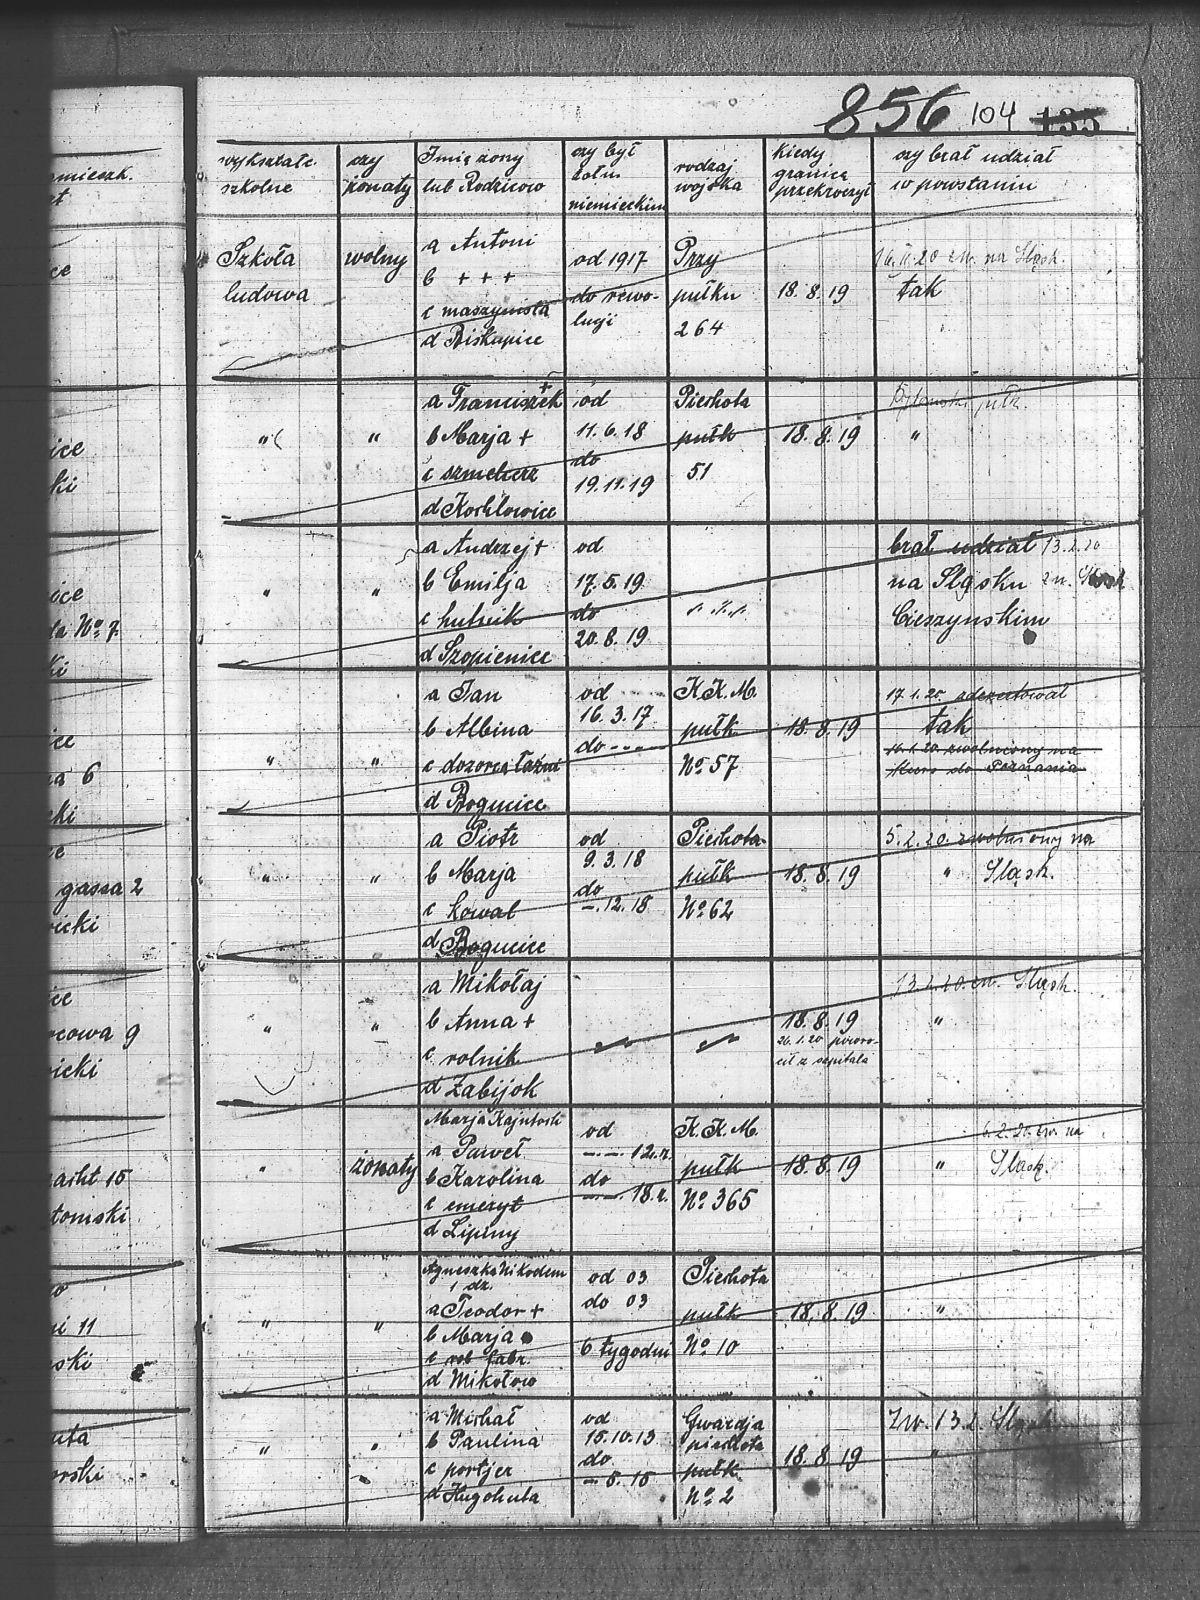 856 104 135
wykształc. szkolne
czy żonaty
Imię żony lub Rodziców
czy był żołn niemieckim
rodzaj wojska
kiedy granicę przekroczył
czy brał udział w powstaniu
omieszk.
Szkoła ludowa
wolny
a Antoni
b + + +
c maszynista
d Biskupice
od 1917
do rewo-
lucji
Przy
pułku
264
18.8.19
16.II.20 zw. na Śląsk.
tak
ice
ki
" "
a Franciszek +
b Marja +
c szmelcerz
d Kochlowice
od
11.6.18
do
19.11.19
Piechota
pułk
51
18.8.19
pułk.
"
ice
la No 7.
ki
" "
a Andrzej +
b Emilja
c hutnik
d Szopienice
od
17.5.19
do
20.8.19
brał udział 13.2.20
na Śląsku zw. Śląsk
Cieszynskim
ice
na 6
ki
" "
a Jan
b Albina
c dozorca łazni
d Bogucice
od
16.3.17.
do ----
K.K.M.
pułk
No 57
18.8.19
17.1.20. zdezertował
tak
16.1.20 zwolniony na
kurs do Poznania
gassa 2
icki
" "
a Piotr
b Marja
c kowal
d Bogucice
od
9.3.18
do
-.12.18
Piechota
pułk
No 62
18.8.19
5.2.20. zwolniony na
" Śląsk.
ice
cowa 9
icki
" "
a Mikołaj
b Anna +
c rolnik
d Żabijok
18.8.19
26.1.20 powro-
cił z szpitala
13.2.20. zw. Śląsk.
"
acht 15
tomski
"
żonaty
Marja Kajntoch
a Paweł
b Karolina
c emeryt
d Lipiny
od
-.-. 12.r.
do
-.-. 18.r.
K.K.M.
pułk
No 365
18.8.19
6.2.20. zw. na
" Śląsk.
i 11
ski
" "
Agneszka Nikodem
1 dz.
a Teodor +
b Marja
c rob fabr.
d Mikołow
od 03
do 03
6 tygodni
Piechota
pułk
No 10
18.8.19
"
uta
orski
" "
a Michał
b Paulina
c portjer
d Hugohuta
od
15.10.13
do
-8.18
Gwardja
piechota
pułk
No 2
18.8.19
Zw. 13.2. Śląsk
"